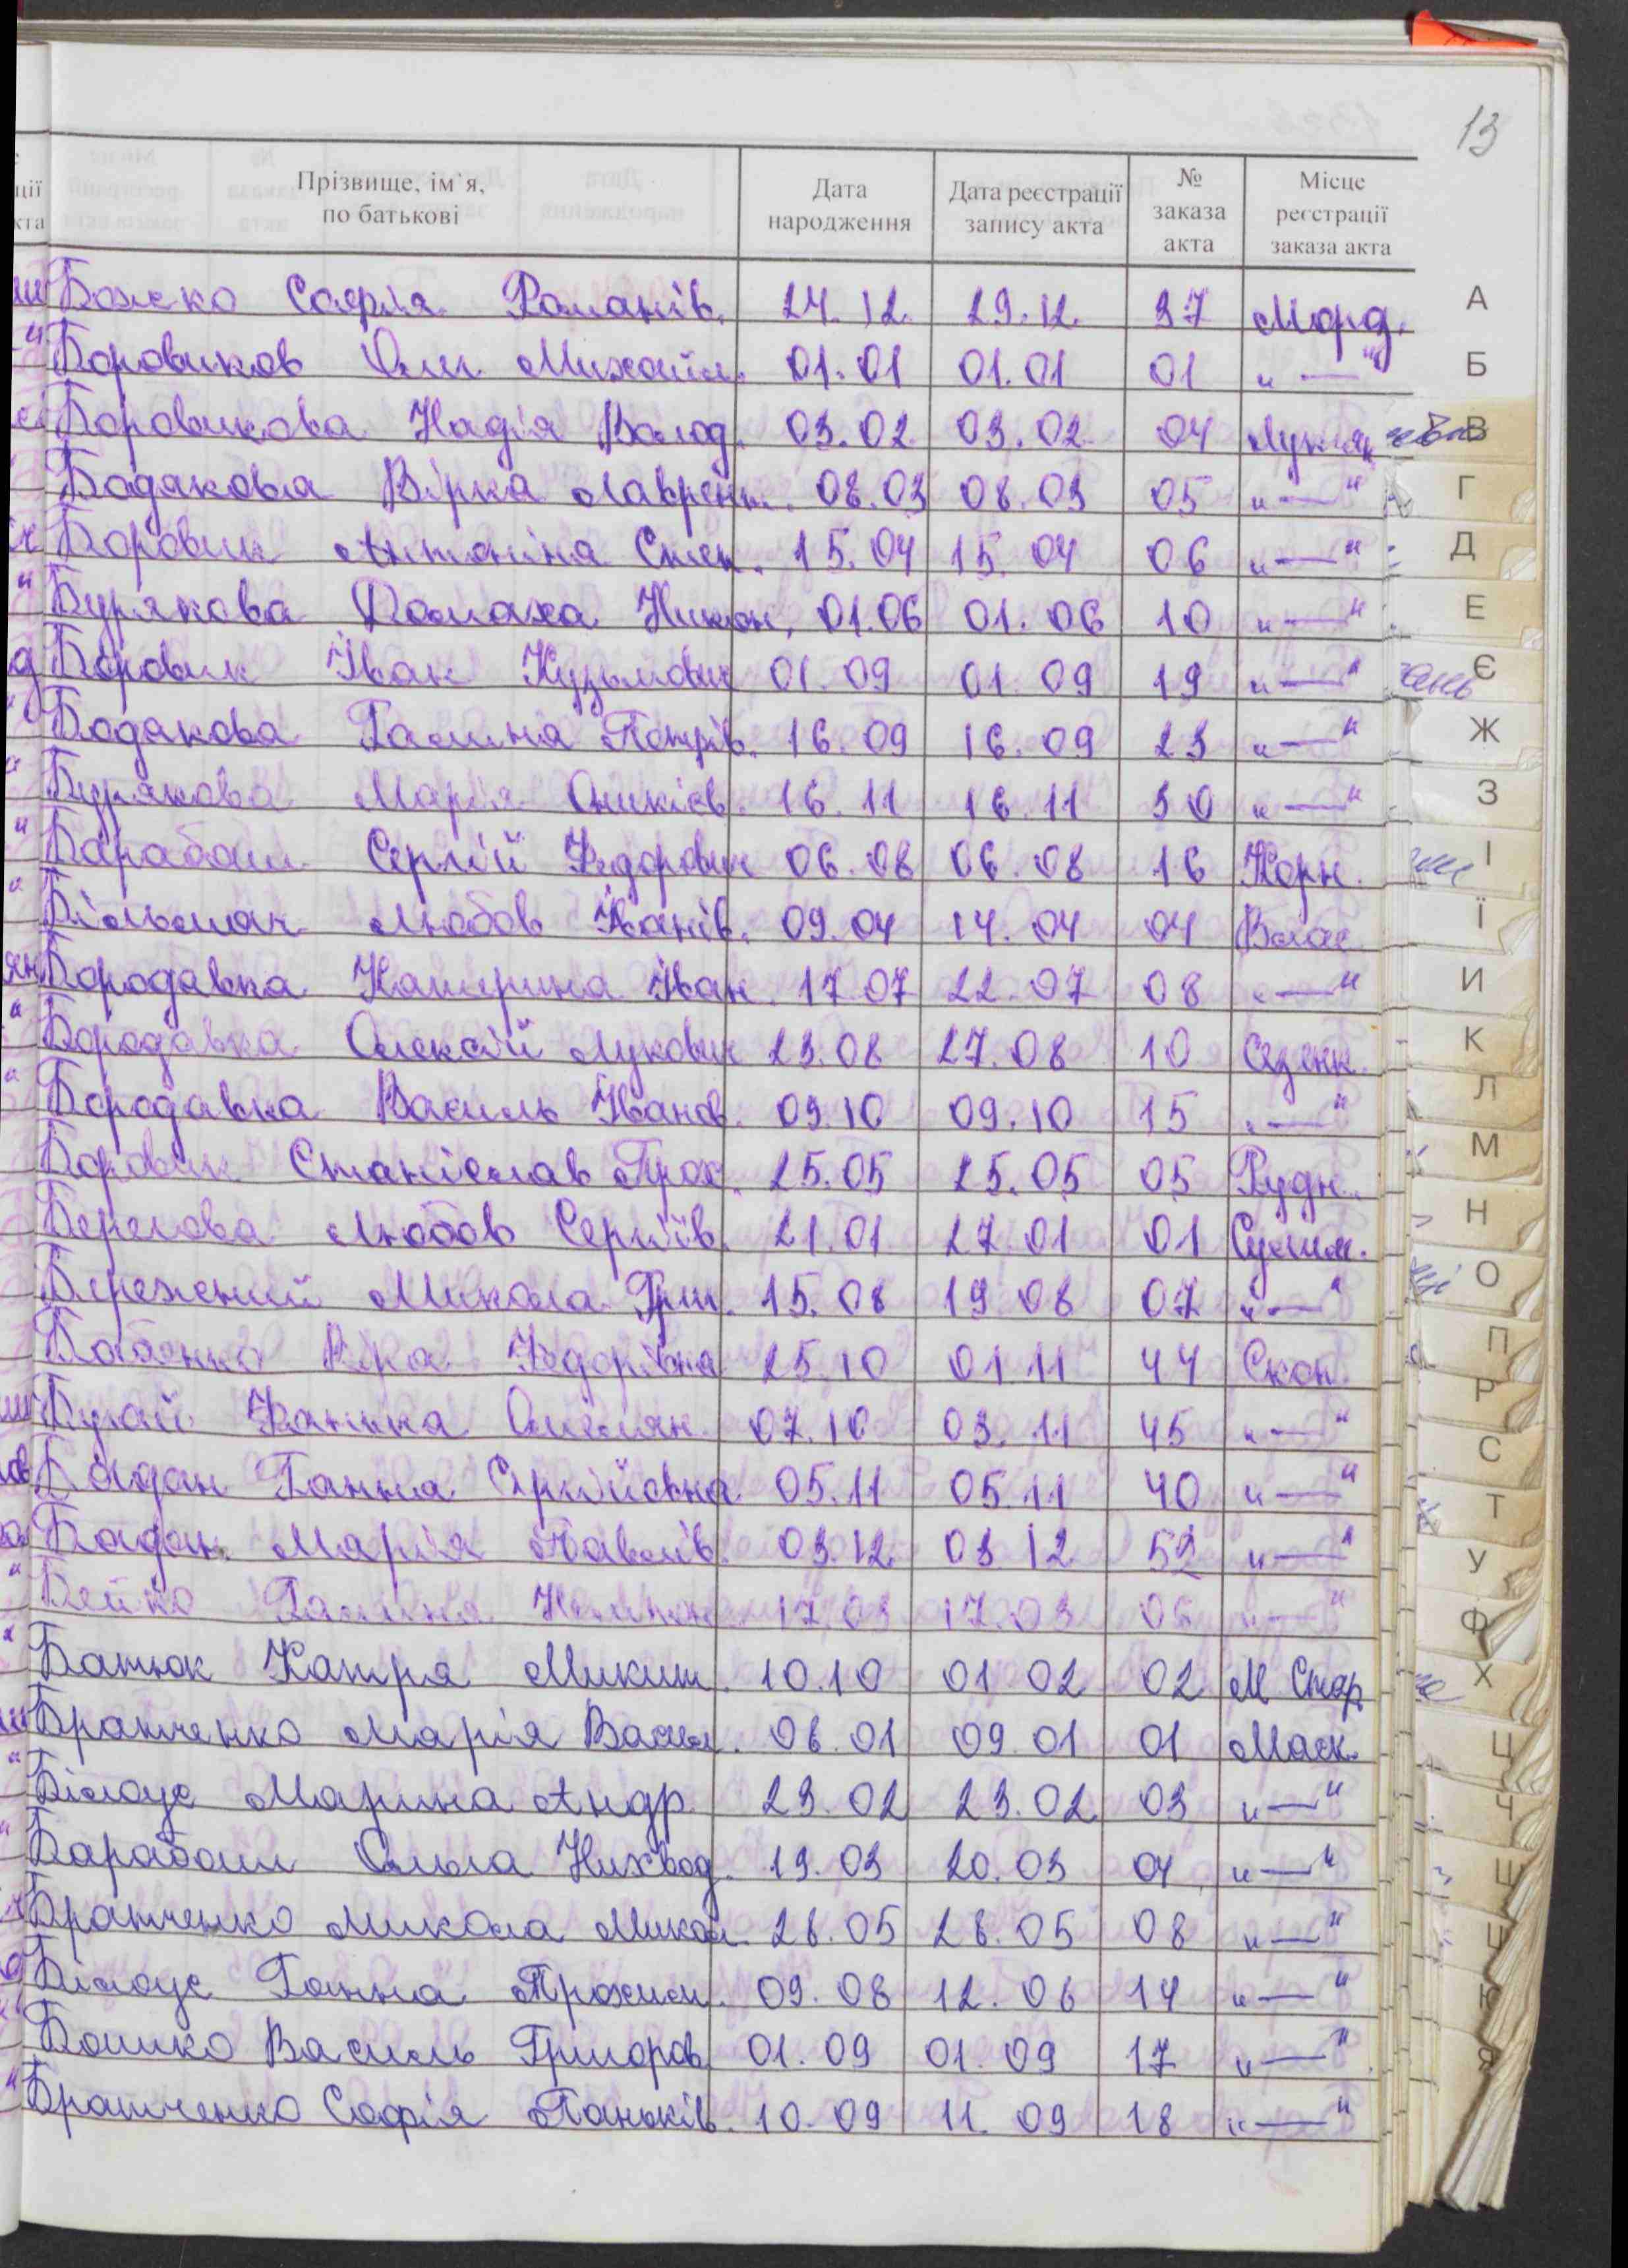 13
Прізвище, ім`я, по батькові Дата народження Дата реєстрації запису акта № заказа акта Місце реєстрації заказа акта
Божко Софія Романів. 24.12. 29.12. 37 Морд.
Боровиков Олш Михайл. 01.01 01.01 01 "—"
Боровикова Надія Волод. 03.02 03.02 04 Лукян
Бодакова Вірка Лаврент. 08.03 08.03 05 "—"
Боровик Антоніна Степ. 15.04 15.04 06 "—"
Бурякова Домаха Никон. 01.06 01.06 10 "—"
Боровик Іван Кузьмович 01.09 01.09 19 "—"
Бодакова Галина Петрів. 16.09 16.09 23 "—"
Бурякова Марія Оникієв. 16.11 16.11 30 "—"
Барабаш Сергій Федорович 06.08 06.08 16 Корн.
Більмач Любов Іванів. 09.04 14.04 04 Влас
Бородавка Катерина Іван. 17.07 22.07 08 "—"
Бородавка Олексій Лукович 23.08 27.08 10 Озерн.
Бородавка Василь Іванов. 09.10 09.10 15 "—"
Боровик Станіслав Прох. 25.05 25.05 05 Рудн.
Берегова Любов Сергіїв. 21.01 27.01 01 Сулим.
Бережний Микола Григ. 15.08 19.08 07 "—"
Бабенко Віра Федорівна 25.10 01.11 44 Скоп.
Бугай Фанька Омелян. 07.10 03.11 45 "—"
Богдан Ганна Сергіївна 05.11 05.11 40 "—"
Богдан Марія Павлів. 03.12 03.12 52 "—"
Бейко Галина 17.03 17.03 06 "—"
Батюк Катря Микит. 10.10 01.02 02 М Стар
Братченко Марія Васил. 06.01 09.01 01 Маск.
Білоус Марина Андр. 23.02 23.02 03 "—"
Барабаш Ольга Нихвод. 19.03 20.03 04 "—"
Братченко Микола Микол. 26.05 28.05 08 "—"
Білоус Ганна Трохим. 09.08 12.08 14 "—"
Бошко Василь Григоров 01.09 01.09 17 "—"
Братченко Софія Паньків. 10.09 11.09 18 "—"
А
Б
В
Г
Д
Е
Є
Ж
З
І
Ї
И
К
Л
М
Н
О
П
Р
С
Т
У
Ф
Х
Ц
Ч
Ш
Щ
Ю
Я